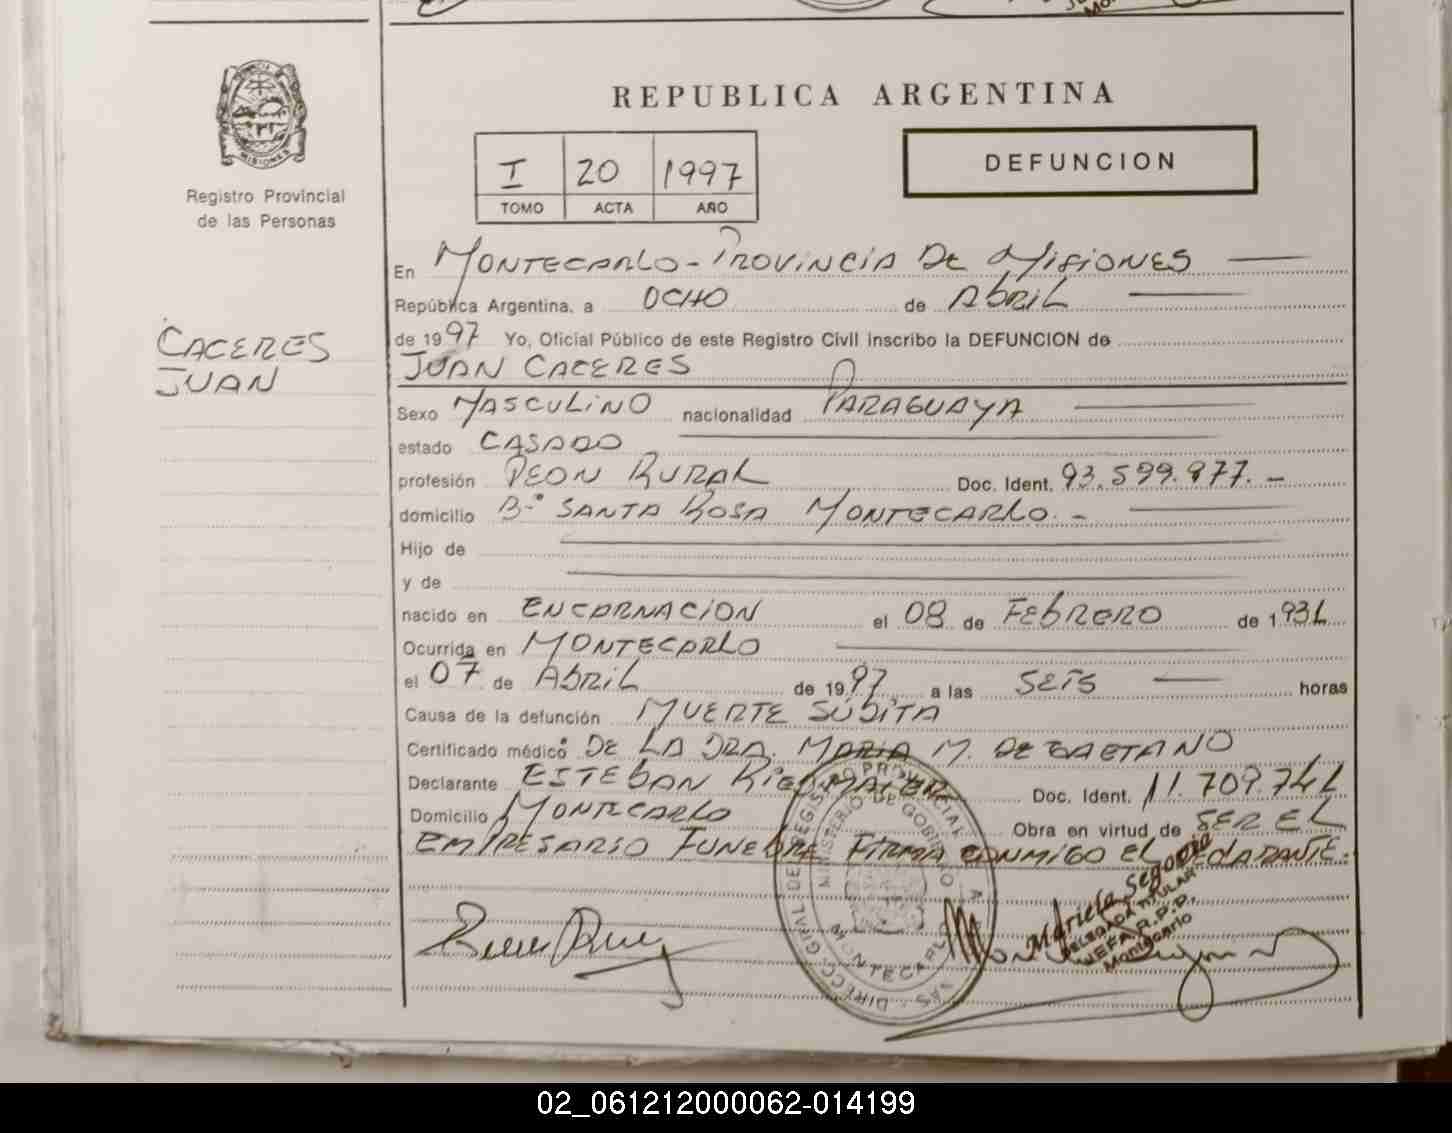 MISIONES
Registro Provincial
de las Personas
CACERES
JUAN
REPUBLICA ARGENTINA
I 20 1997
TOMO ACTA AÑO
DEFUNCION
En MONTECARLO - PROVINCIA DE MISIONES
República Argentina, a OCHO de Abril
de 1997 Yo, Oficial Público de este Registro Civil inscribo la DEFUNCION de
JUAN CACERES
Sexo MASCULINO nacionalidad PARAGUAYA
estado CASADO
profesión PEON RURAL Doc. Ident. 93.599.977.-
domicilio Bº SANTA ROSA MONTECARLO.-
Hijo de
y de
nacido en ENCARNACION el 08 de FEbRERO de 1931
Ocurrida en MONTECARLO
el 07 de Abril de 1997 a las SEIS horas
Causa de la defunción MUERTE SÚBITA
Certificado médico DE LA DRA. MARIA M. DE GAETANO
Declarante ESTEBAN Doc. Ident. 11.709.741
Domicilio MONTECARLO Obra en virtud de SER EL
EMPRESARIO FUNEBRE FIRMA CONMIGO EL DECLARANTE.
Mariela Segovia
DELEGADA TITULAR
JEFA R.P.P.
Montecarlo
MINISTERIO DE GOBIERNO
MONTECARLO
02_061212000062-014199